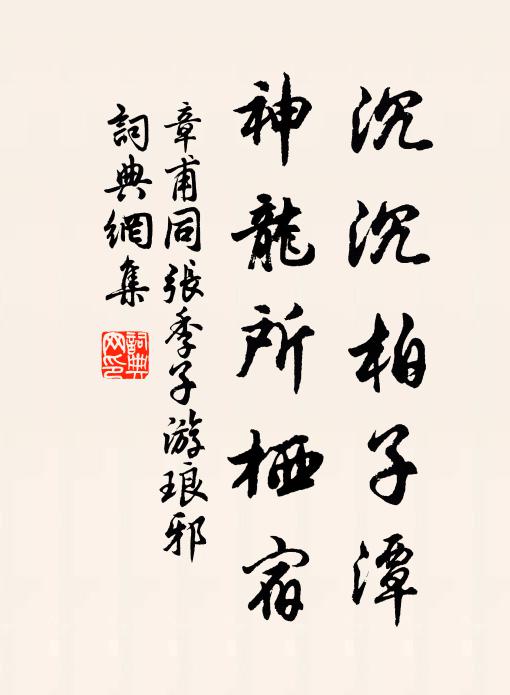 沉沉柏子潭
神龍所栖宿
章甫同張季子游琅邪
詞典網集
詞典网印